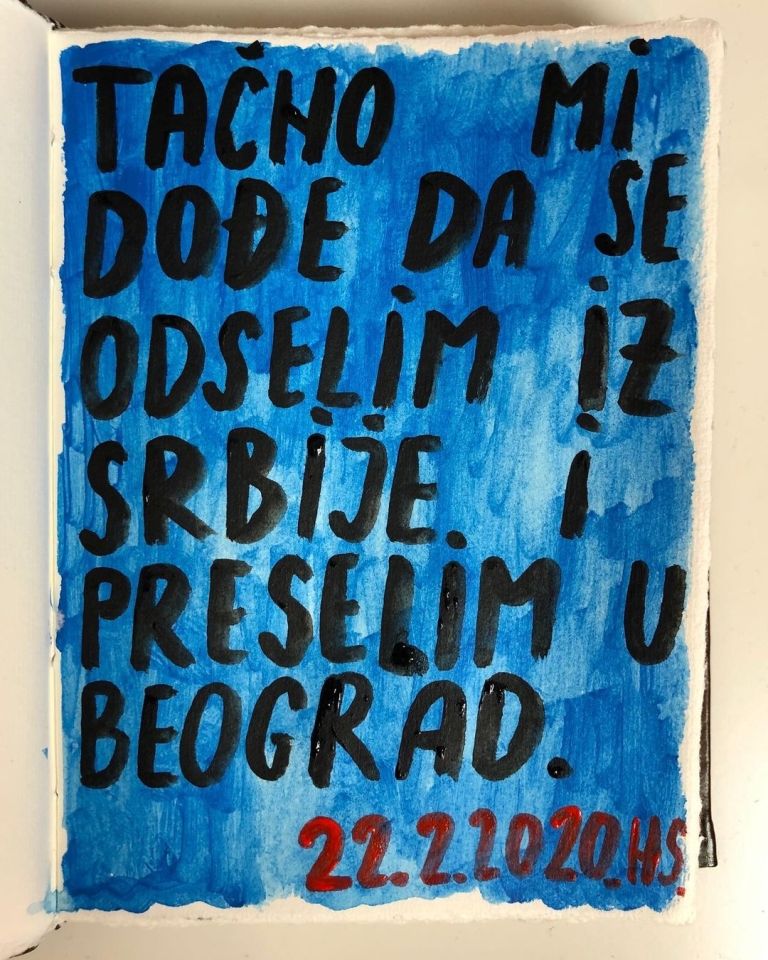 TAČNO MI
DOĐE DA SE
ODSELIM IZ
SRBIJE. I
PRESELIM U
BEOGRAD.
22.2.2020.HS.